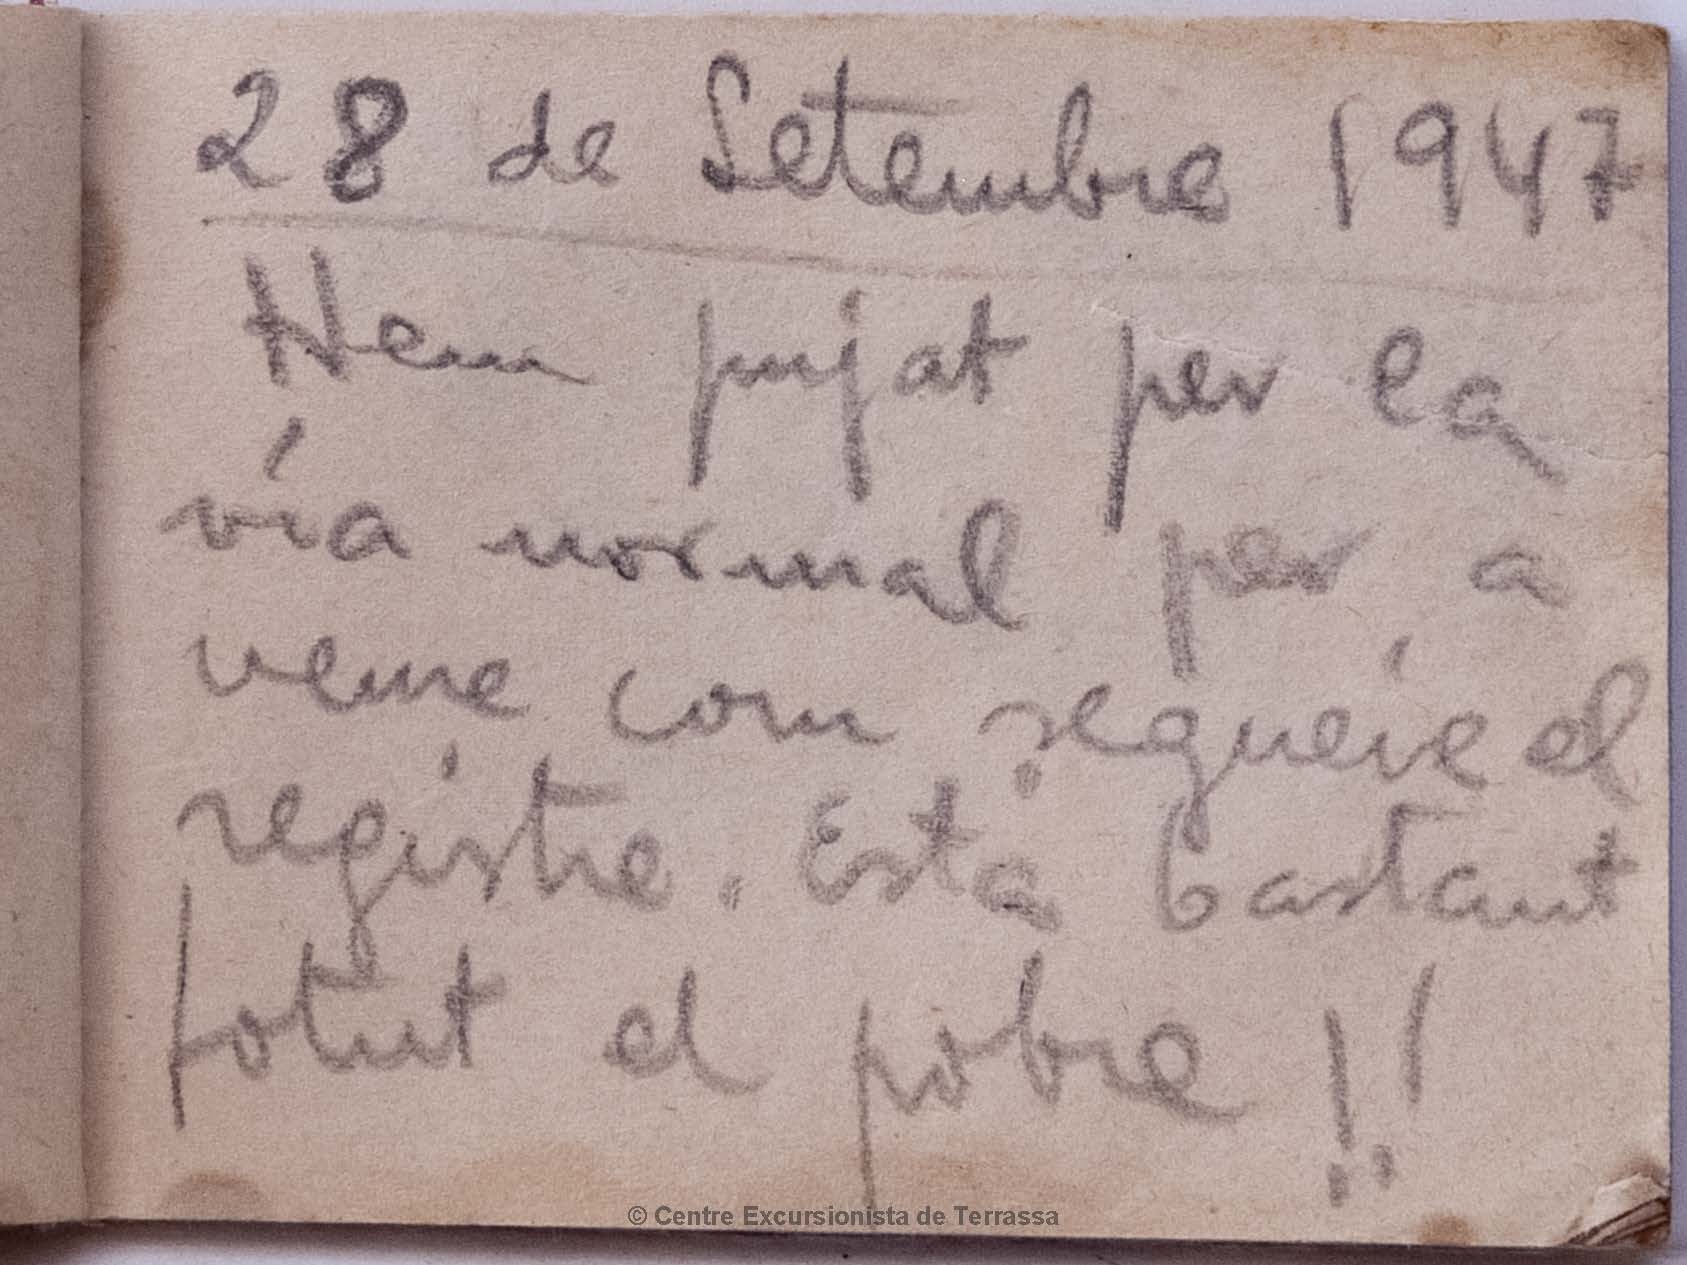 28 de Setembre 1947
Hem pujat per la
vía normal per a
veure com segueíe el
registre. Está bastant
fotut el pobre!!
© Centre Excursionista de Terrassa